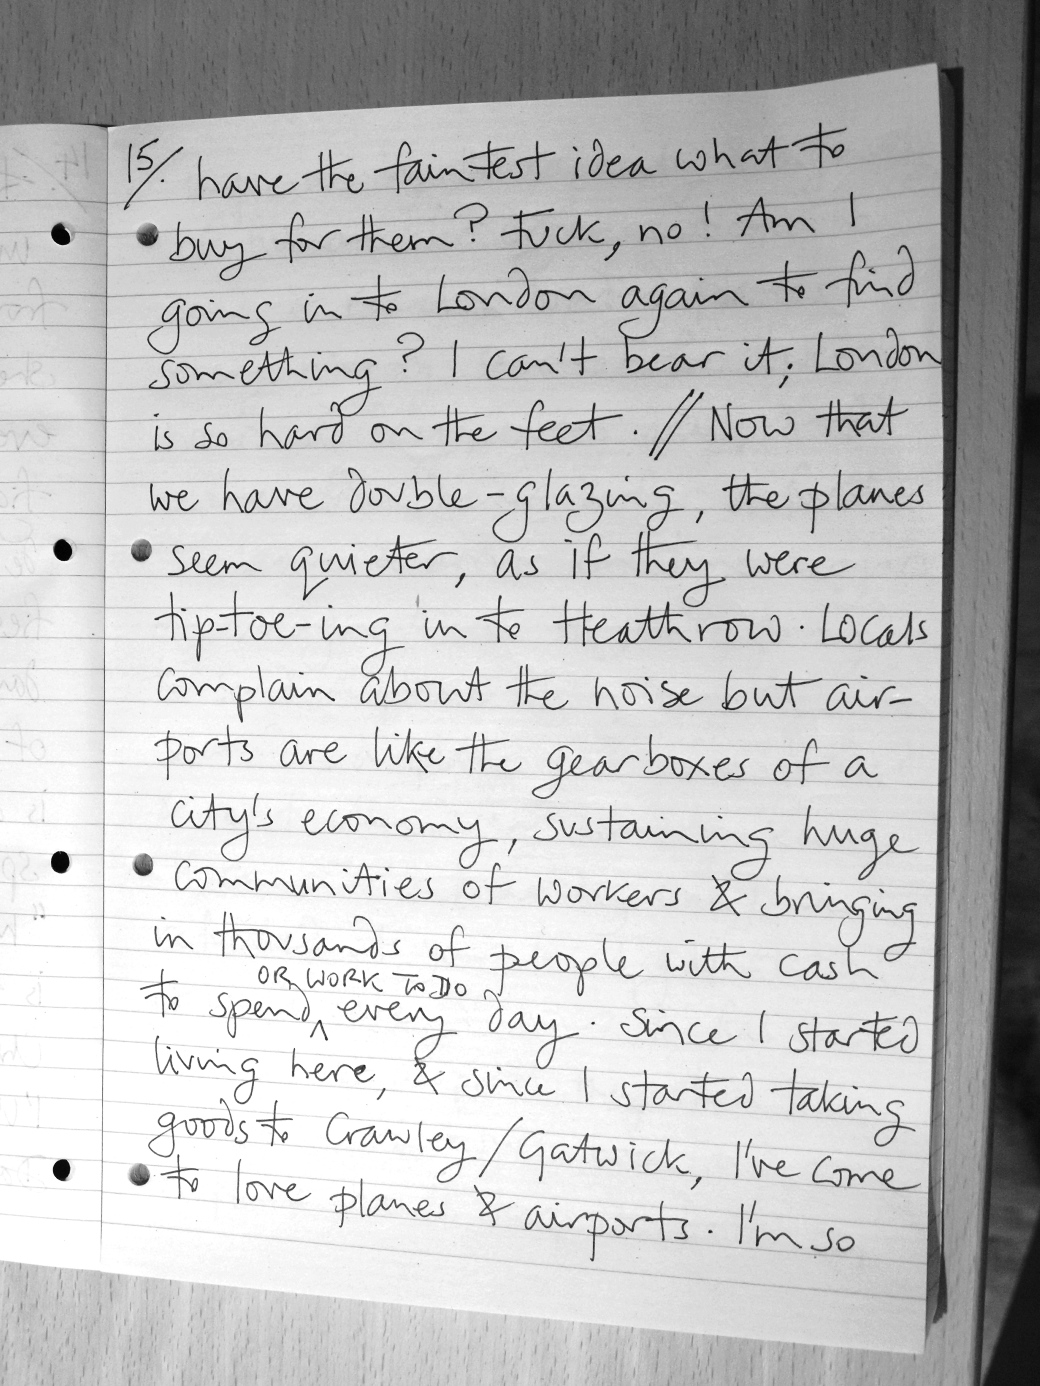 15/. have the faintest idea what to
buy for them? Fuck, no! Am I
going in to London again to find
something? I can't bear it; London
is so hard on the feet. // Now that
we have double-glazing, the planes
seem quieter, as if they were
tip-toe-ing in to Heathrow. Locals
complain about the noise but air-
ports are like the gearboxes of a
city's economy, sustaining huge
communities of workers & bringing
in thousands of people with cash
OR WORK TO DO
to spend ^ every day. Since I started
living here, & since I started taking
goods to Crawley/Gatwick, I've come
to love planes & airports. I'm so